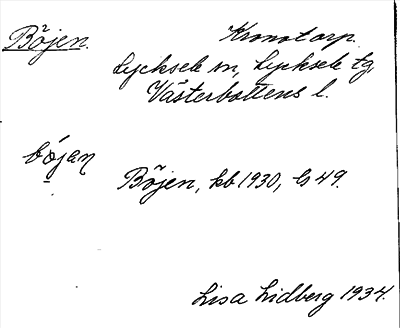 Böjen.
Kronotorp.
Lycksele sn, Lycksele tg,
Västerbottens l.
bö́jan
Böjen, kb 1930, s 49.
Lisa Lidberg 1934.